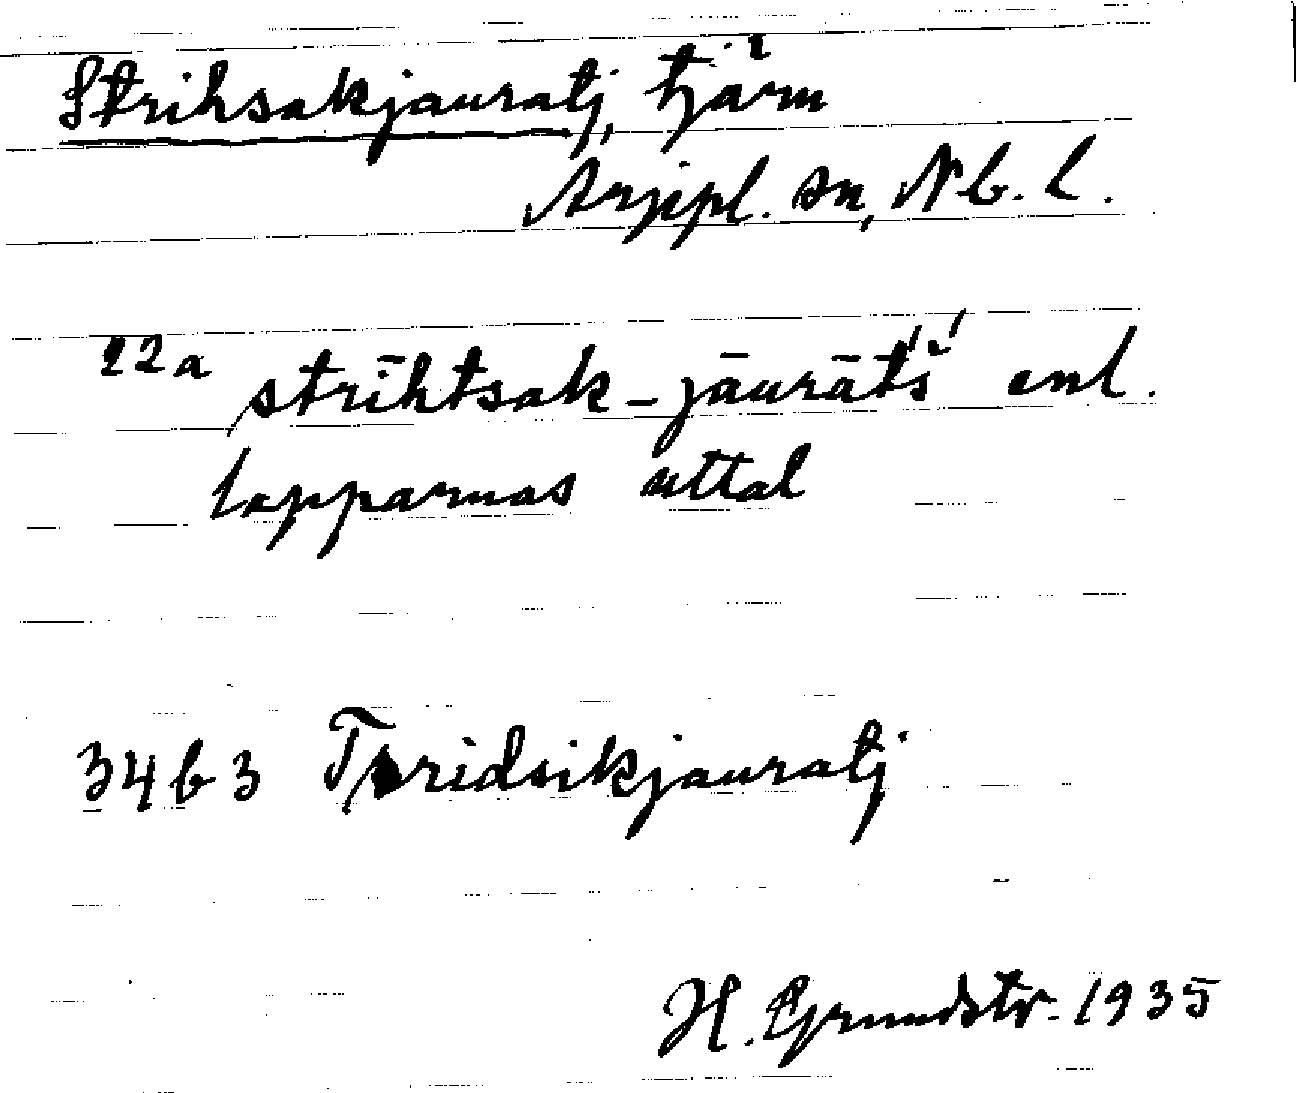 Strihsakjauratj, tjärn
Arjepl. sn, Nb. l.
22a strīhtsak-jāurāt́š́ enl.
lapparnas uttal
34 b 3 Tjridsikjauratj
H. Grundstr. 1935